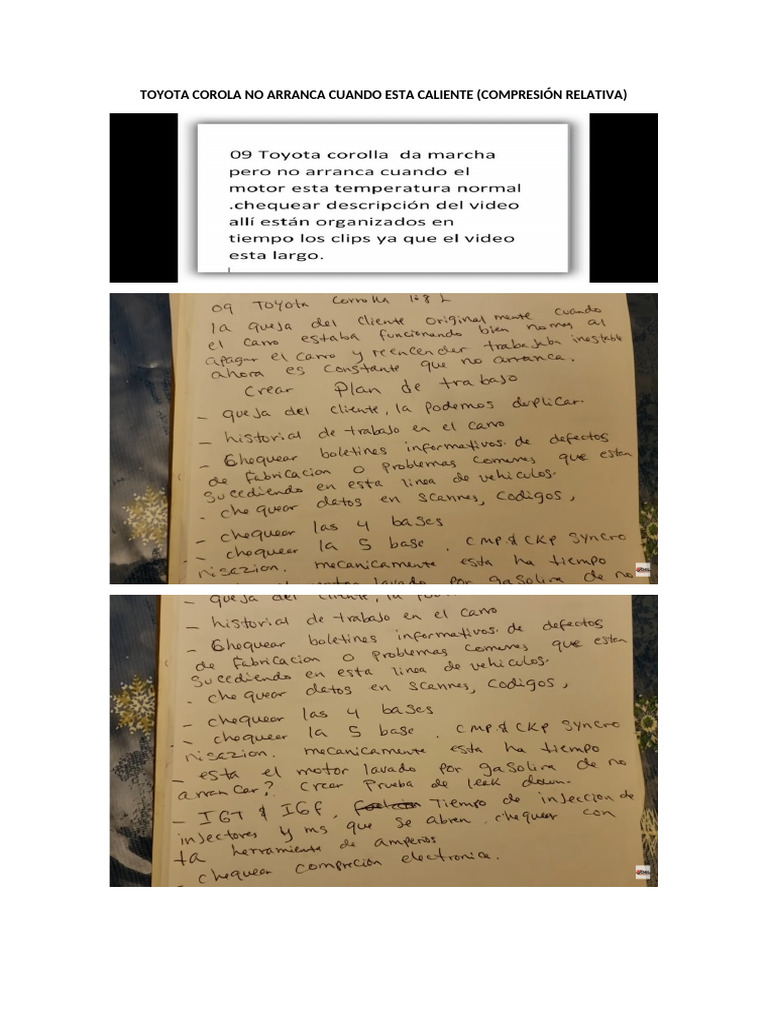 TOYOTA COROLA NO ARRANCA CUANDO ESTA CALIENTE (COMPRESIÓN RELATIVA)
09 Toyota corolla da marcha
pero no arranca cuando el
motor esta temperatura normal
.chequear descripción del video
allí están organizados en
tiempo los clips ya que el video
esta largo.
09 Toyota Corrolla 1.8 L
la queja del cliente original mente cuando
el carro estaba funcionando bien no mas al
apagar el carro y reencender trabajaba inestable
ahora es constante que no arranca.
Crear Plan de trabajo
- queja del cliente, la podemos duplicar.
- historial de trabajo en el carro
- Chequear boletines informativos. de defectos
de Fabricacion o problemas comunes que estan
sucediendo en esta linea de vehiculos.
- chequear datos en scanner, codigos,
- chequear las 4 bases
- chequear la 5 base. CMP & CKP syncro
nisazion. mecanicamente esta ha tiempo
motor lavado por gasolina de no
- queja del cliente, la
- historial de trabajo en el carro
- Chequear boletines informativos. de defectos
de Fabricacion o problemas comunes que estan
sucediendo en esta linea de vehiculos.
- chequear datos en scanner, codigos,
- chequear las 4 bases
- chequear la 5 base. CMP & CKP syncro
nisazion. mecanicamente esta ha tiempo
- esta el motor lavado por gasolina de no
arrancar? Crear Prueba de leek down.
- IGT & IGF, Tiempo de injeccion de
injectores y ms que se abren. chequear con
ta herramienta de amperios
- chequear comprecion electronica.